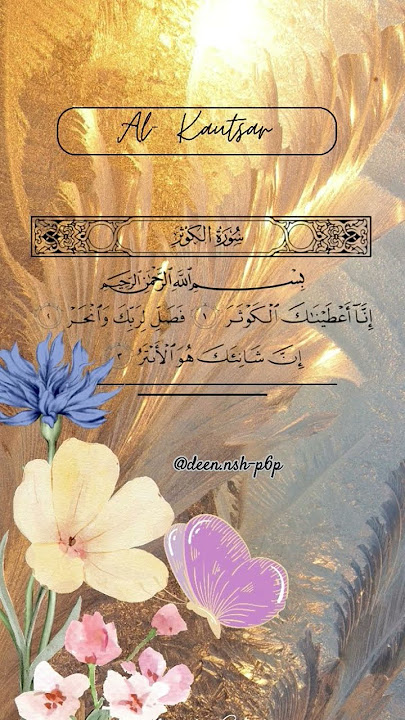 Al- Kautsar
سُورَةُ الكَوْثَرِ
بِسْمِ ٱللَّهِ ٱلرَّحْمَٰنِ ٱلرَّحِيمِ
إِنَّآ أَعْطَيْنَٰكَ ٱلْكَوْثَرَ ١ فَصَلِّ لِرَبِّكَ وَٱنْحَرْ ٢
إِنَّ شَانِئَكَ هُوَ ٱلْأَبْتَرُ ٣
@deen.nsh-p6p